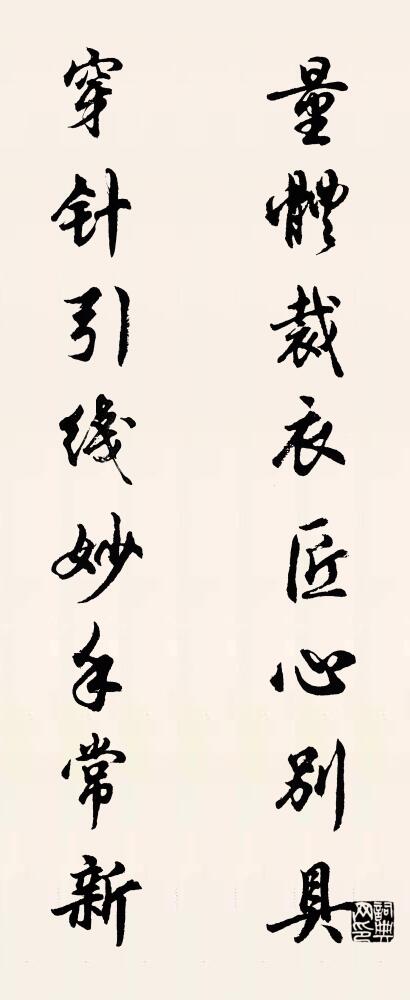 量體裁衣匠心别具
穿针引线妙手常新
詞典网印